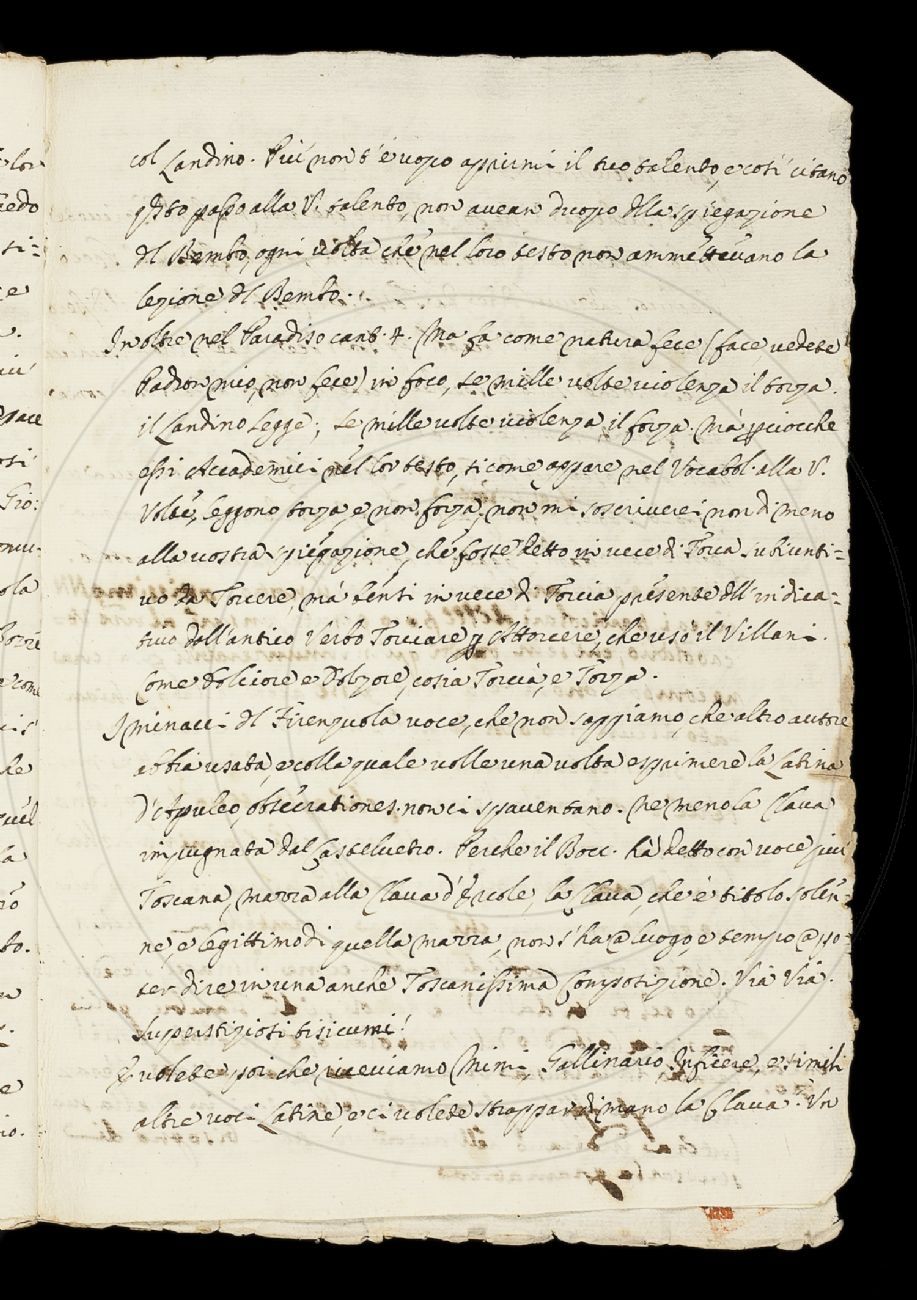 col Landino. Più non t'è uopo aprirmi il tuo talento, e così citano
qsto passo alla V. talento, non avean d'uopo dlla spiegazione
dl Bembo, ogni volta che nel loro testo non ammettevano la
lezione dl Bembo.
Inoltre nel Paradiso cant. 4. Ma fa come natura fece (face, vedete
Padron mio, non fece) in foco, se mille volte violenza il torza.
il Landino Legge; se mille volte violenza il forza. Mà pciocche
essi Accademici nel lor testo, si come appare nel Vocabol. alla V.
Volte, leggono torza, e non forza, non mi soscriverei non di meno
alla vostra spiegazione, che foste detto in vece di Torca subiunti=
vo da Torcere, mà benti in vece di Torcia presente dll'indica=
tivo dall'antico Verbo Torciare p attorcere, che usò il Villani.
Come dolciore e Dolzore, cosia Torcia, e Torza.
I minacci dl Firenzuola voce, che non sappiamo, che altro autore
abbia usata, e colla quale volle una volta esprimere la Latina
d'Apuleo, obsecrationes. non ci spaventano. Ne meno la Clava
impugnata dal Castelvetro. Perche il Bocc. hà detto con voce piu
Toscana, mazza alla Clava d'Ercole, la Clava, che è titolo solen-
ne, e legittimo di quella mazza, non s'ha @ luogo, e tempo @ po-
ter dire in una anche Toscanissima Composizione. Via Via.
Superstiziosi tisicumi!
E volete poi che riceviamo Mimi, Gallinario, Inficere, e simili
altre voci Latine, e ci volete strappar di mano la Clava. Un